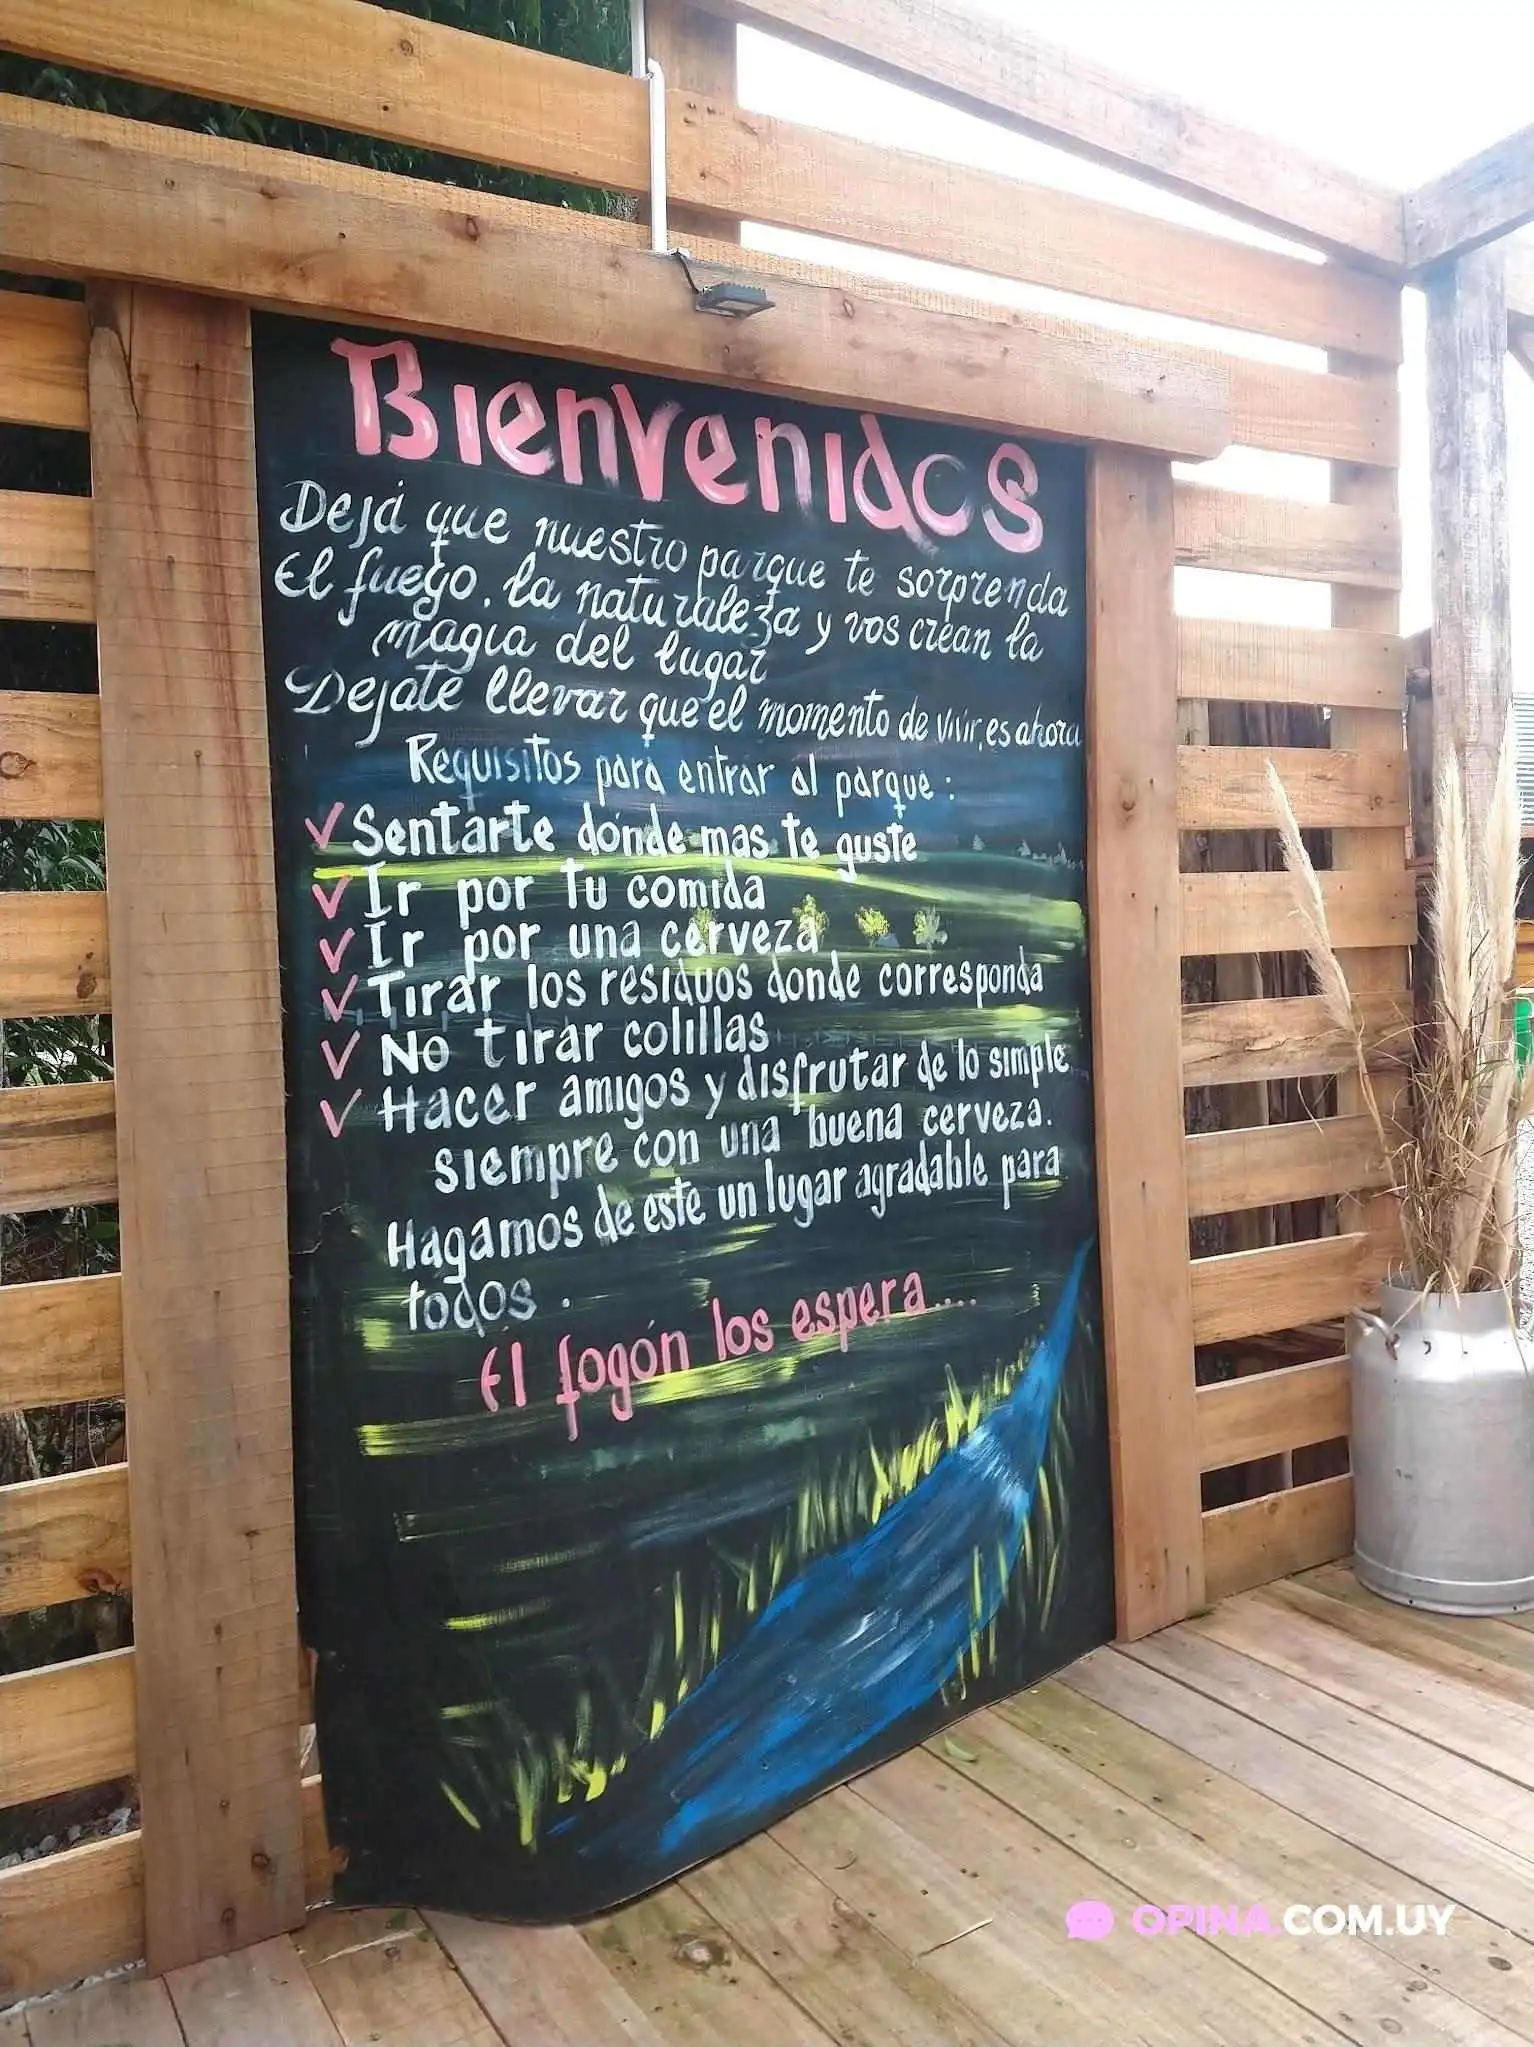 Bienvenidos
Dejá que nuestro parque te sorprenda
El fuego, la naturaleza y vos crean la
magia del lugar
Dejate llevar que el momento de vivir, es ahora
Requisitos para entrar al parque:
✓ Sentarte donde mas te guste
✓ Ir por tu comida
✓ Ir por una cerveza
✓ Tirar los residuos donde corresponda
✓ No tirar colillas
✓ Hacer amigos y disfrutar de lo simple,
siempre con una buena cerveza.
Hagamos de este un lugar agradable para
todos.
El fogón los espera....
OPINA.COM.UY